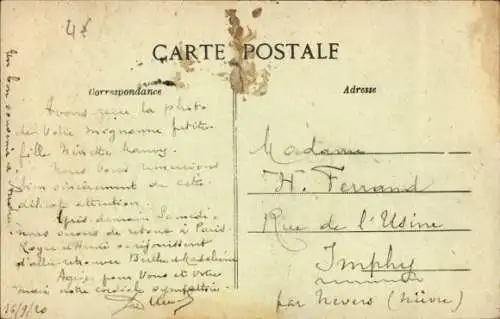 4f
CARTE POSTALE
Correspondance
Adresse
Un bon souvenir de
Avons reçu la photo
de Votre mignonne petite
fille Ninette
Nous Vous remercions
bien sincèrement de cette
délicate attention.
Après demain Samedi
nous serons de retour à Paris
et se réjouissent
d'aller retrouver Berthe et Madeleine
Agréez pour Vous et Votre
mari notre cordiale sympathie
16/9/20
Madame
H. Ferrand
Rue de l'Usine
Imphy
par Nevers (Nièvre)